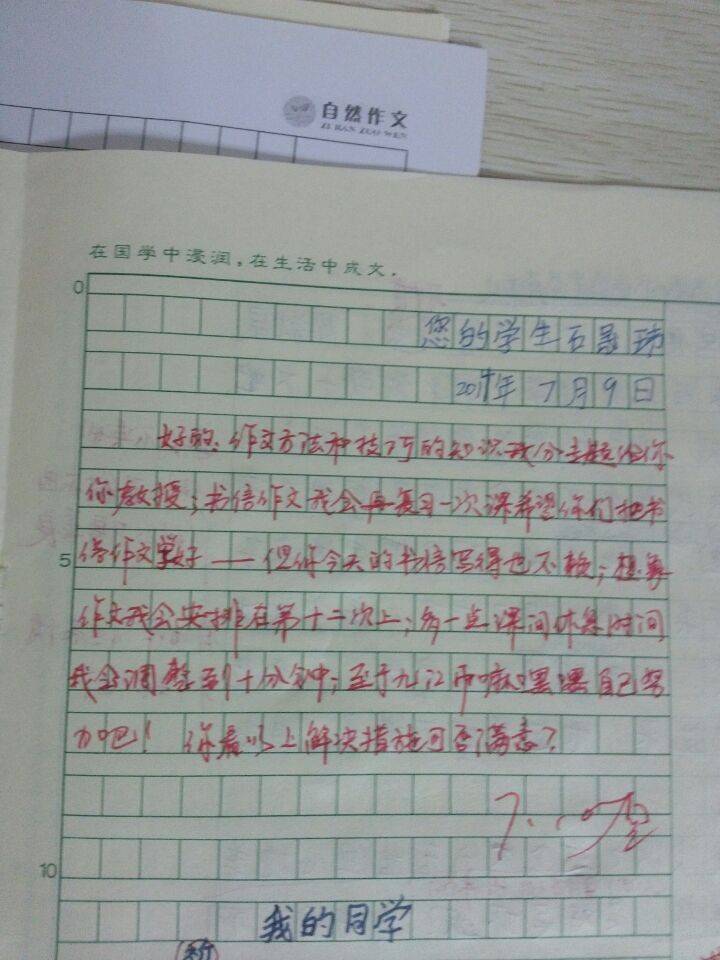 自然作文
ZI RAN ZUO WEN
在国学中浸润，在生活中成文．
0
您的学生石晟玮
2011年7月9日
好的、作文方法和技巧的知识我分主题给你
你教授；书信作文我会再复习一次课希望你们把书
信作文学好——但你今天的书信写得也不赖；想象
作文我会安排在第十二次上；多一点课间休息时间
我会调整到十分钟；至于九江币嘛嘿嘿自己努
力吧！你看以上解决措施可否满意？
5
10
我的同学